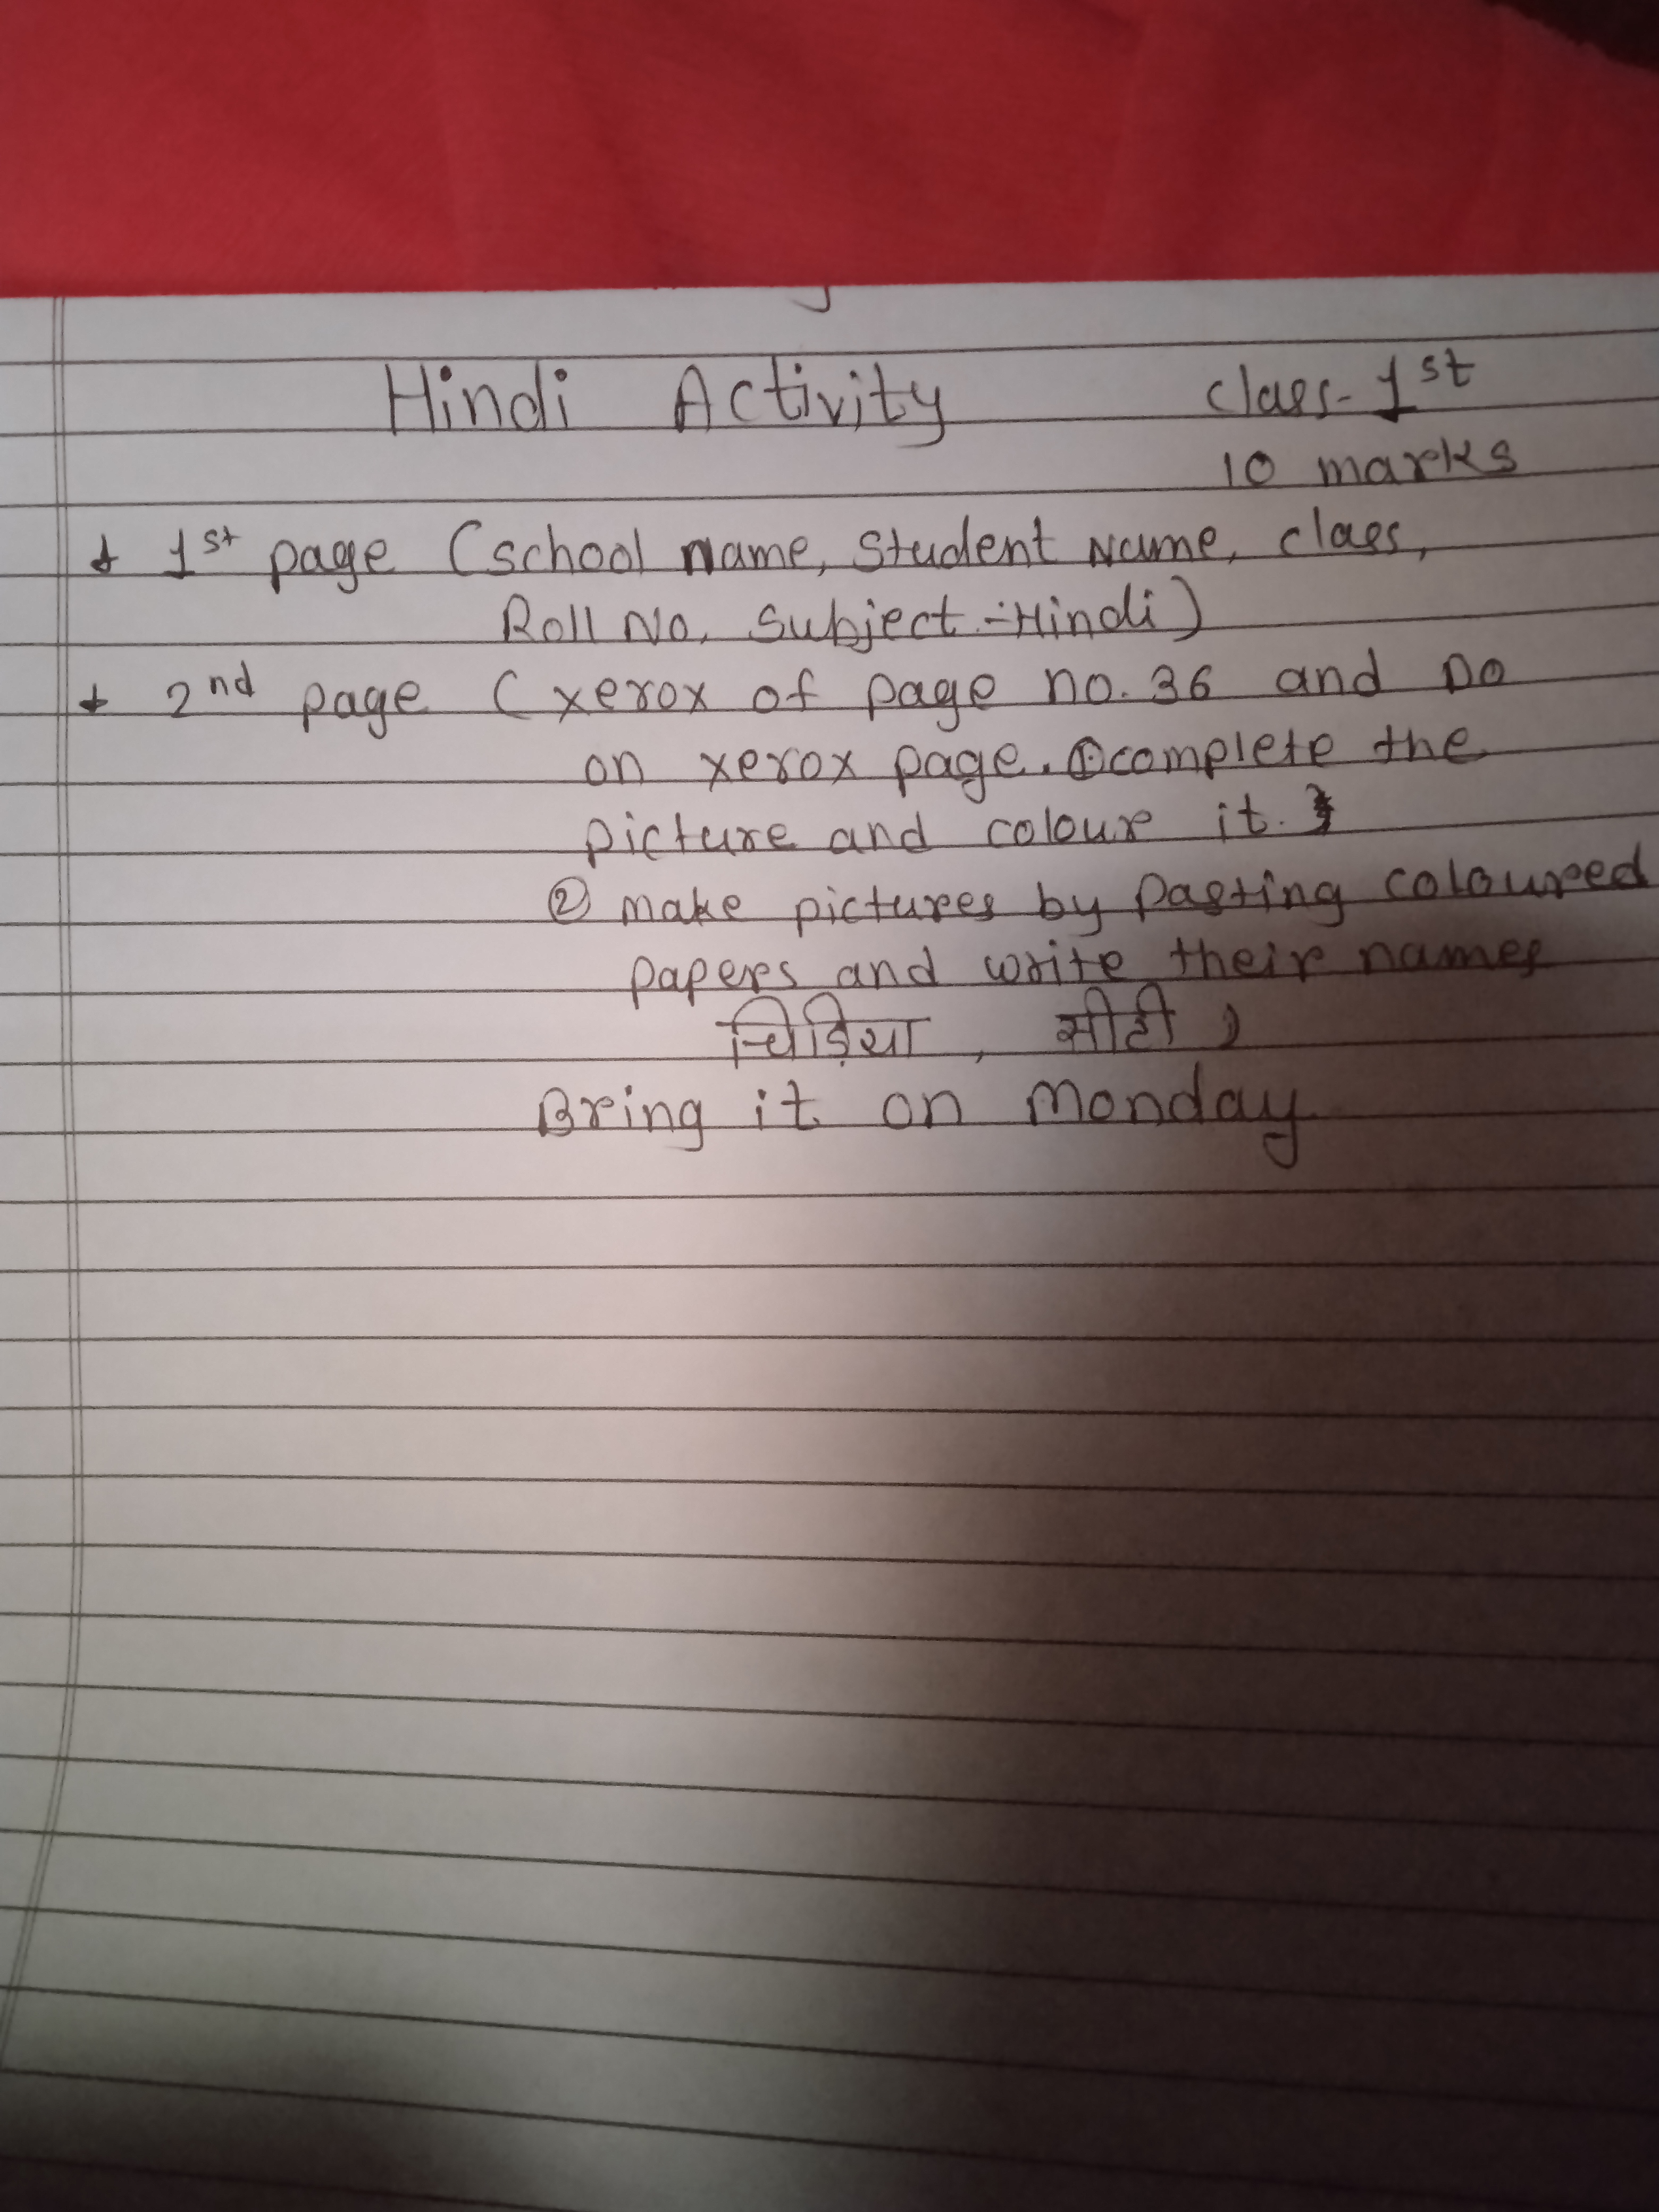 Hindi Activity class-1st
10 marks
1st page (school name, Student Name, class,
Roll No. Subject :- Hindi)
2nd page (xerox of page no. 36 and Do
on xerox page. ① complete the
picture and colour it.
② make pictures by pasting coloured
papers and write their names
चिड़िया, सीटी)
Bring it on Monday